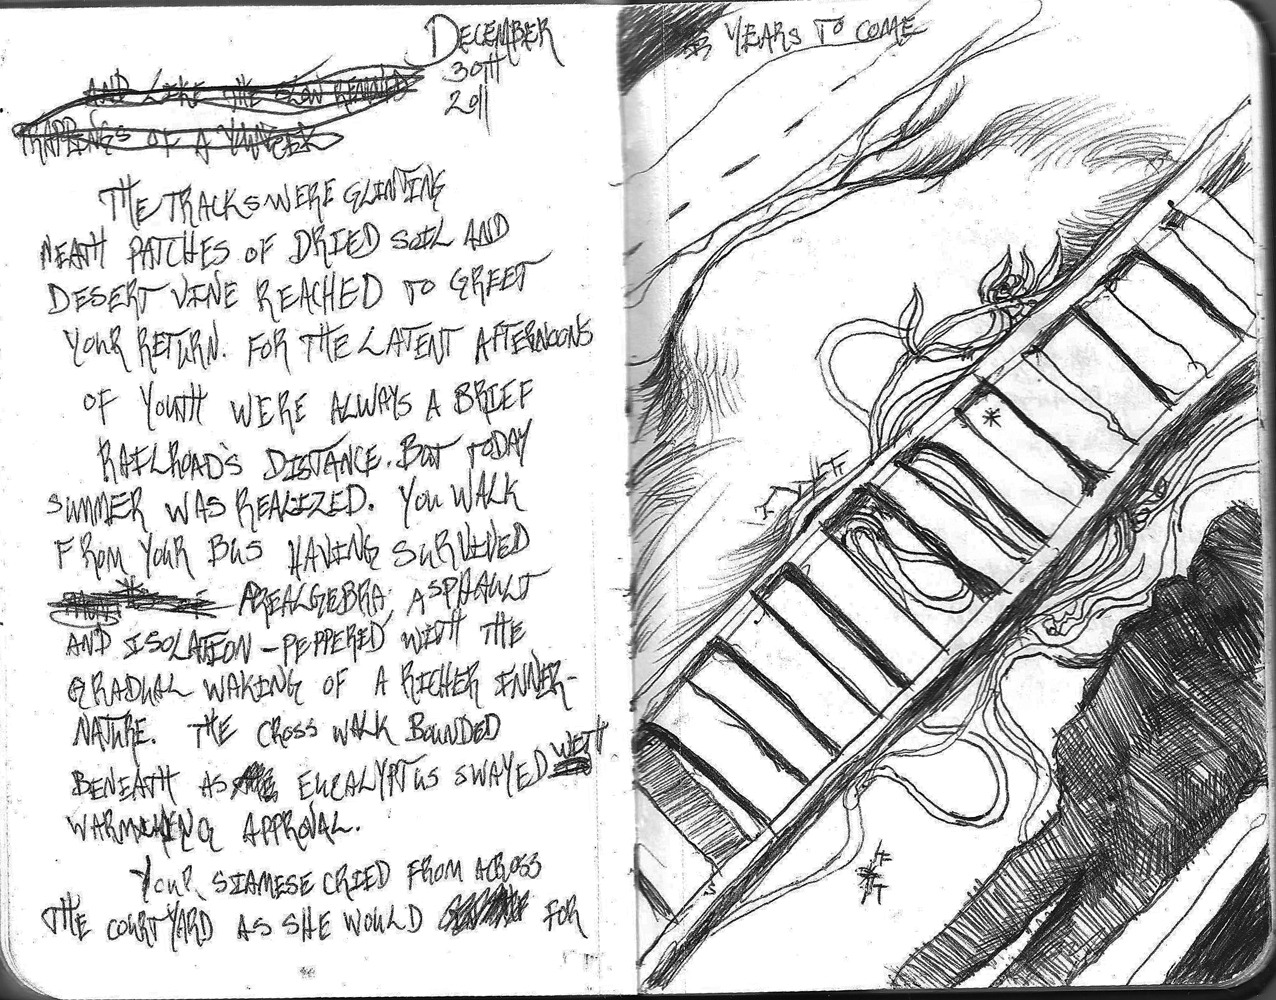 DECEMBER
30TH
2011
AND LIKE THE SLOW
TRAPPINGS OF A
THE TRACKS WERE GLINTING
NEATH PATCHES OF DRIED SOIL AND
DESERT VINE REACHED TO GREET
YOUR RETURN. FOR THE LATENT AFTERNOONS
OF YOUTH WERE ALWAYS A BRIEF
RAILROAD'S DISTANCE. BUT TODAY
SUMMER WAS REALIZED. YOU WALK
FROM YOUR BUS HAVING SURVIVED
PREALGEBRA, ASPHAULT
AND ISOLATION - PEPPERED WITH THE
GRADUAL WAKING OF A RICHER INNER-
NATURE. THE CROSS WALK BOUNDED
BENEATH AS EUCALYPTUS SWAYED WITH
WARM APPROVAL.
YOUR SIAMESE CRIED FROM ACROSS
THE COURTYARD AS SHE WOULD FOR
YEARS TO COME